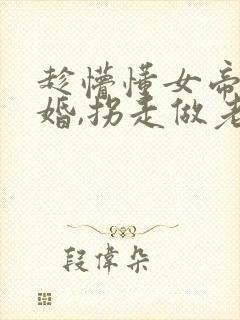 趁懵懂女帝
婚,拐走做老
段偉朵